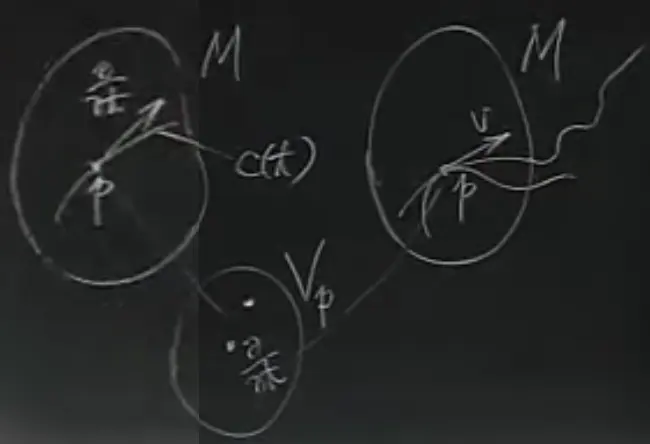 M
∂/∂t
p
C(t)
M
v
p
V_p
∂/∂t